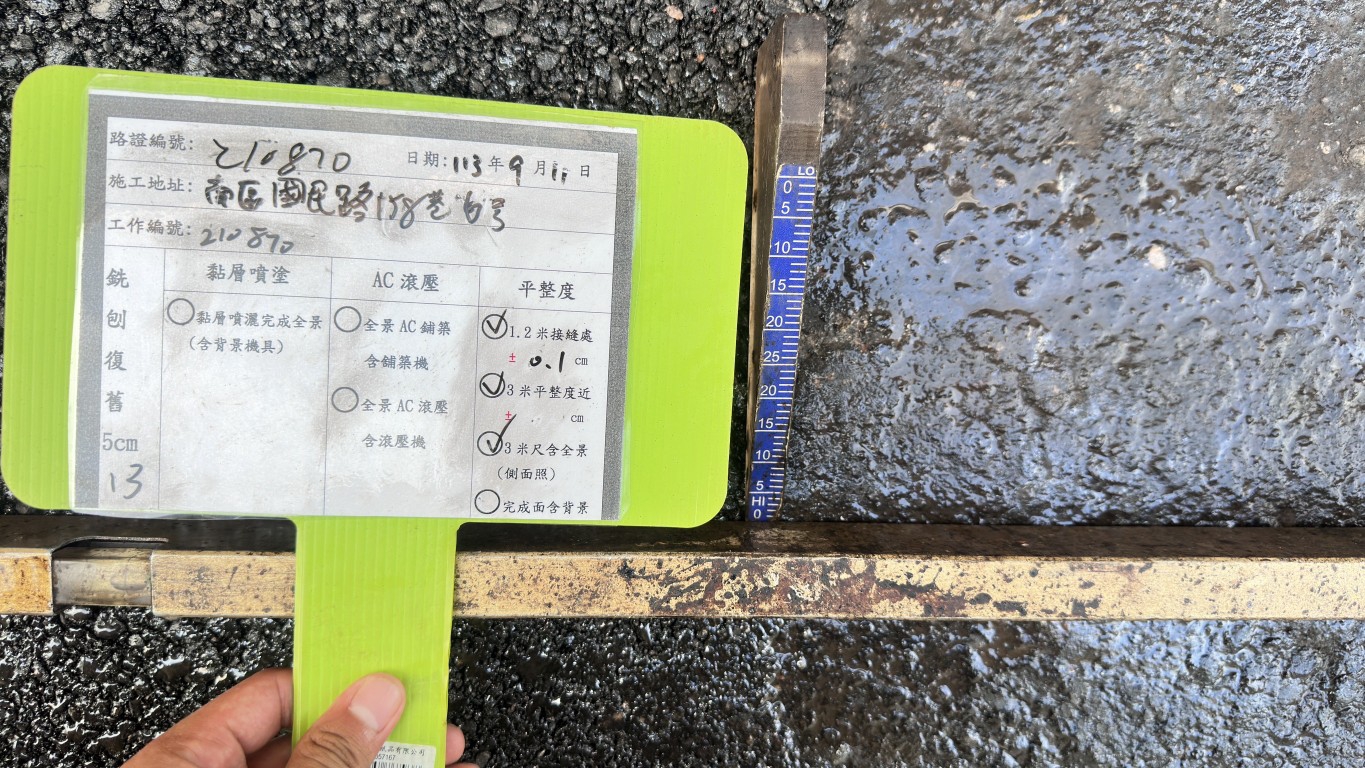 路證編號: 210870 日期: 113 年 9 月 11 日
施工地址: 南區國民路158巷6号
工作編號: 210870
銑刨復舊5cm
13
黏層噴塗
黏層噴灑完成全景
(含背景機具)
AC 滾壓
全景 AC 鋪築
含舖築機
全景 AC 滾壓
含滾壓機
平整度
1.2 米接縫處
± 0.1 cm
3 米平整度近
± cm
3 米尺含全景
(側面照)
完成面含背景
LO
0
5
10
15
20
25
20
15
10
5
HI
0
品有限公司
57167